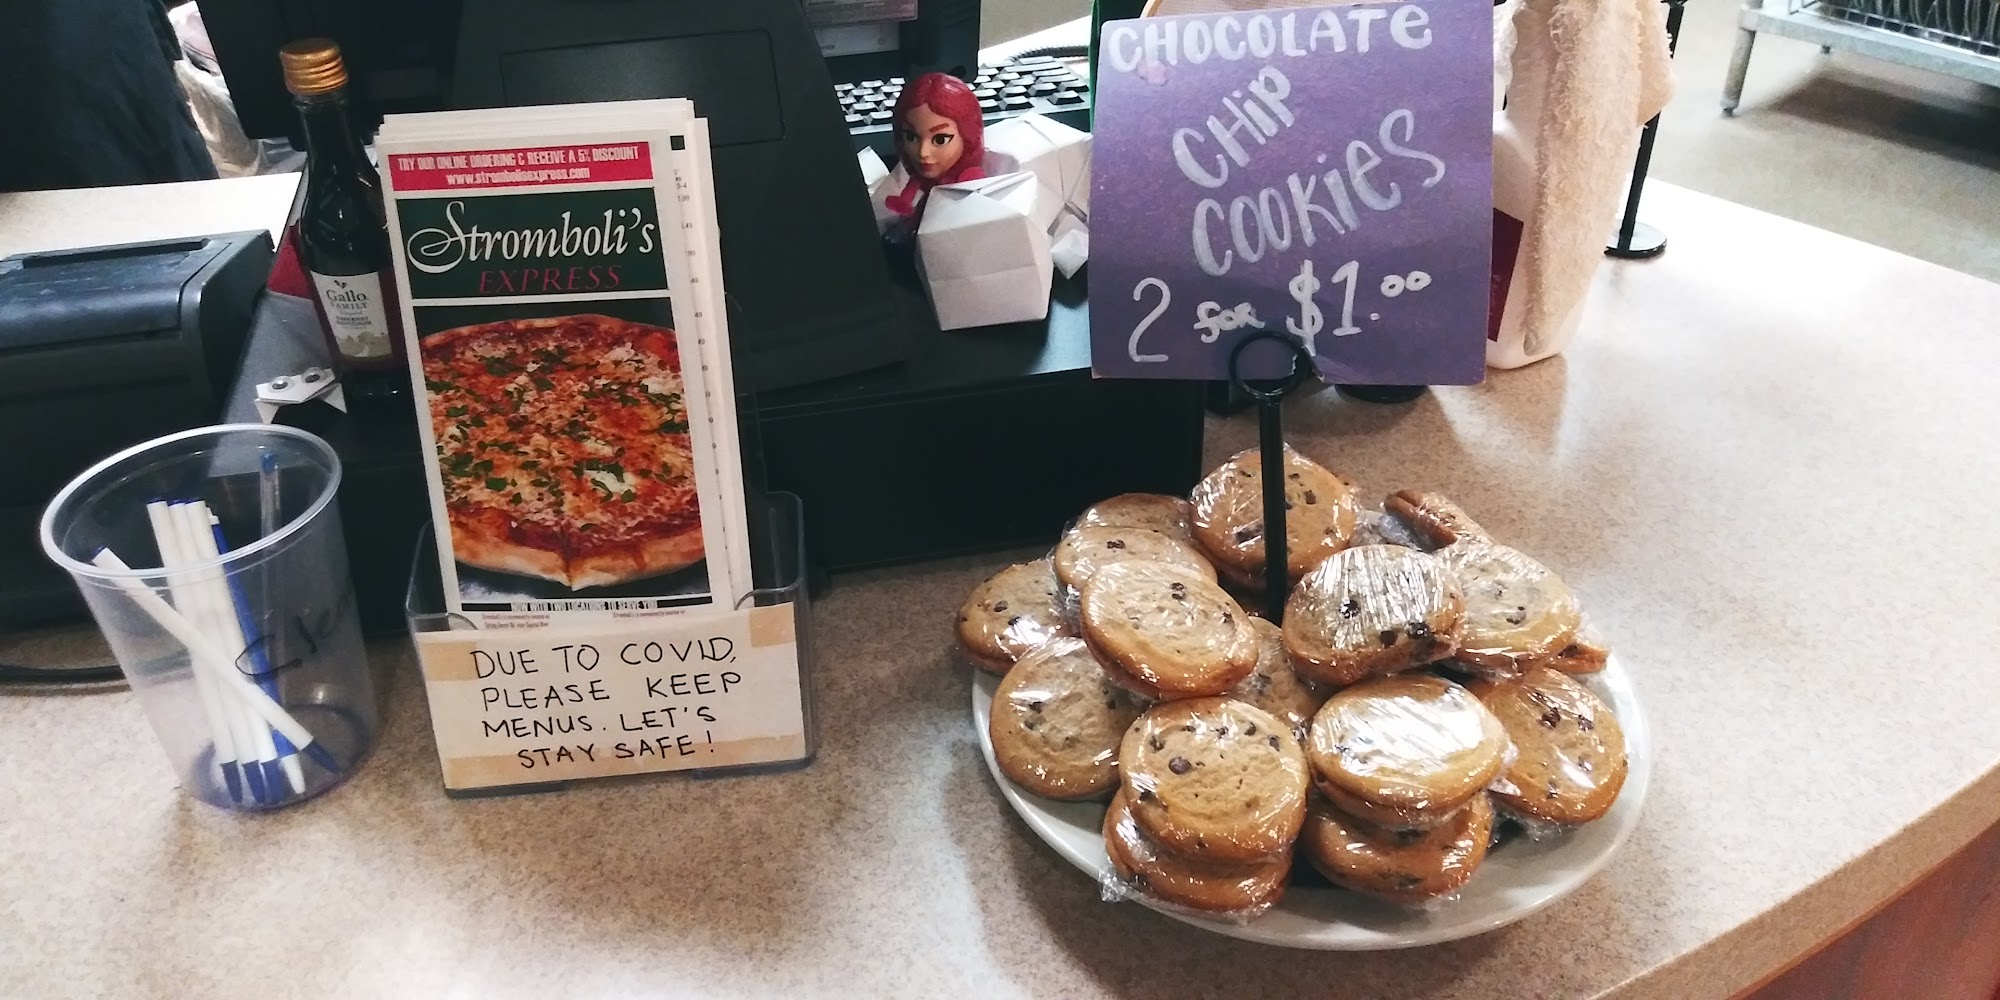 TRY OUR ONLINE ORDERING & RECEIVE A 5% DISCOUNT
www.strombolisexpress.com
Stromboli's
EXPRESS
NOW WITH TWO LOCATIONS TO SERVE YOU
DUE TO COVID,
PLEASE KEEP
MENUS. LET'S
STAY SAFE!
Gallo
FAMILY
CHOCOLATE
CHIP
COOKIES
2 for $1.00